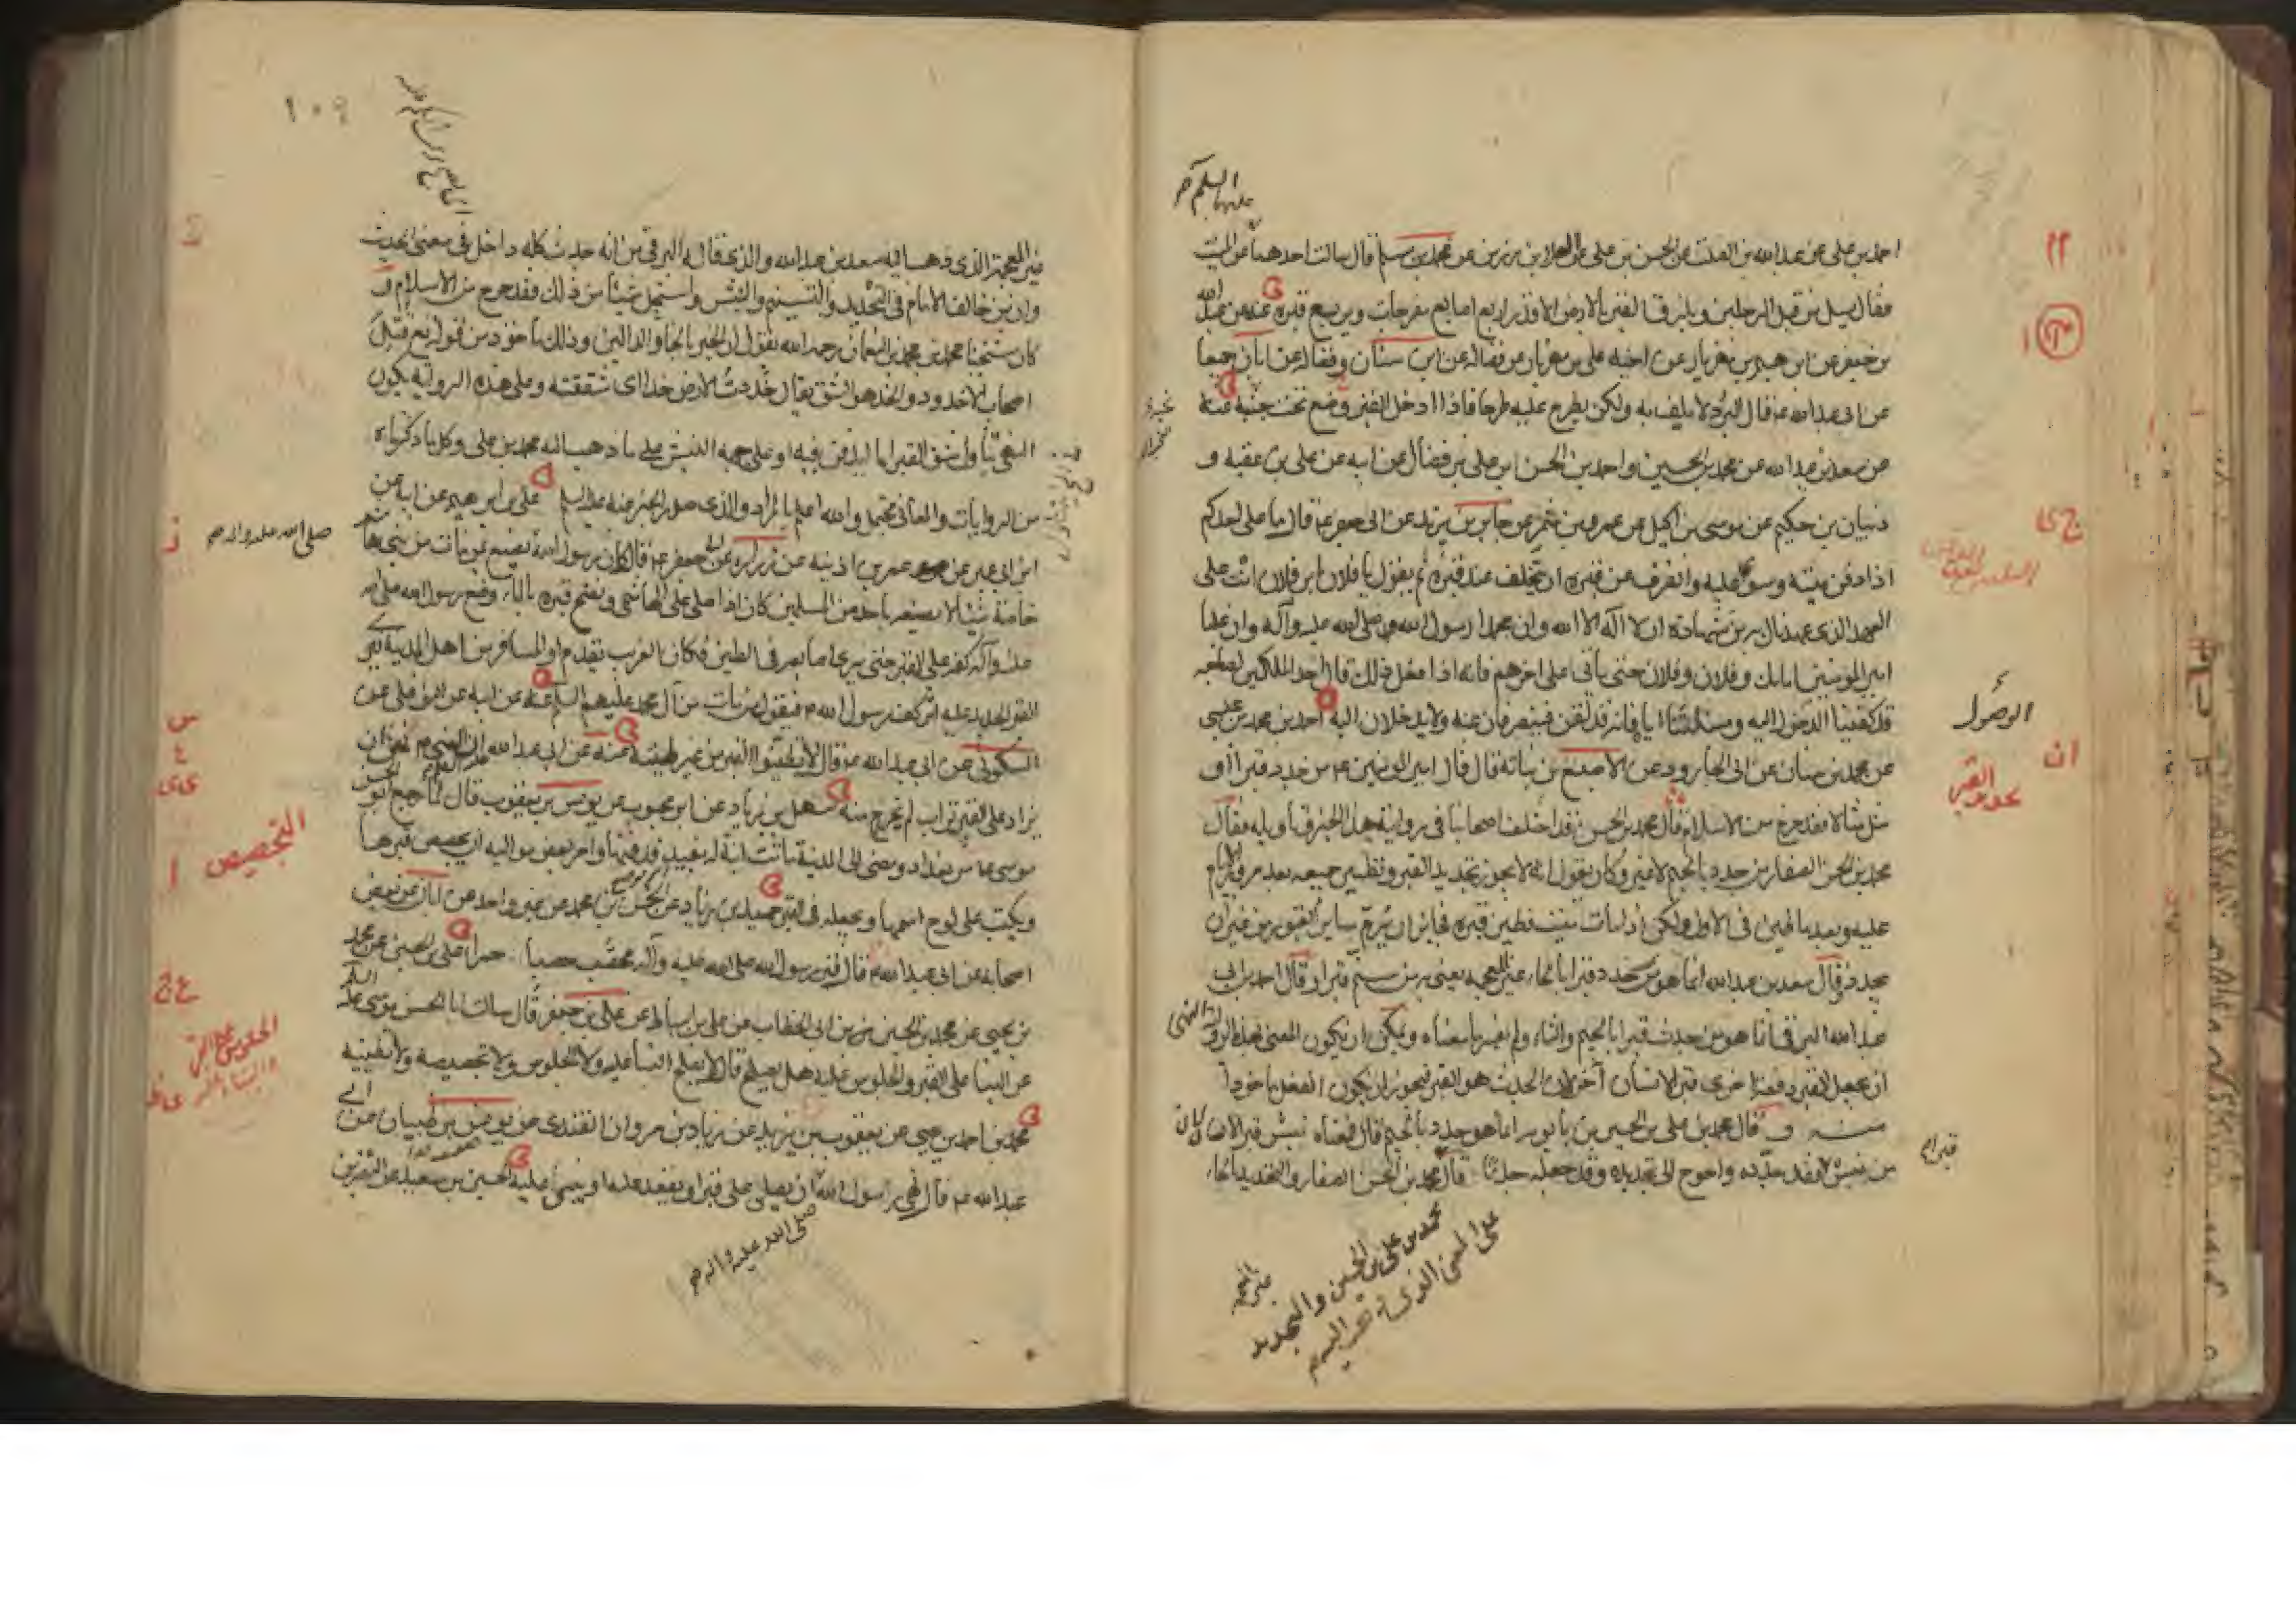 احمد بن علي عن عبد الله بن الصلت عن الحسن بن علي عن العلا بن رزين عن محمد بن مسلم قال سالت احدهما عن الميت
عليهما السلم
فقال يسل من قبل الرجلين ويلزق القبر بالارض الا قدر اربع اصابع مفرجات ويربع قبره عنه عن عبد الله
بن جعفر عن ابرهيم بن مهزيار عن اخيه علي بن مهزيار عن فضاله عن ابن سنان وفضاله عن ابان جميعا
عن ابي عبد الله ع قال البرد لا يلف به ولكن يطرح عليه طرحا فاذا ادخل القبر وضع تحت جنبه عنه
عن سعد بن عبد الله عن محمد بن الحسين واحمد بن الحسن ابن علي بن فضال عن ابيه عن علي بن عقبه و
ذبيان بن حكيم عن موسى بن اكيل عن عمرو بن شمر عن جابر بن يزيد عن ابي جعفر ع قال ما على احدكم
اذا دفن ميته وسوى عليه وانصرف عن قبره ان يتخلف عند قبره ثم يقول يا فلان ابن فلان انت على
العهد الذي عهدناك به من شهادة ان لا اله الا الله وان محمدا رسول الله صلى الله عليه وآله وان عليا
امير المومنين امامك وفلان وفلان حتى ياتي على اخرهم فانه اذا فعل ذلك قال احد الملكين لصاحبه
قد كفينا الدخول اليه ومسئلتنا اياه فانه قد لقن فينصرفان عنه ولا يدخلان اليه احمد بن محمد بن عيسى
الوصول
عن محمد بن سنان عن ابي الجارود عن الاصبغ بن نباته قال قال امير المومنين ع من جدد قبرا او
مثل مثالا فقد خرج من الاسلام قال محمد بن الحسن قد اختلف اصحابنا في رواية هذا الخبر وتاويله فقال
محمد بن الحسن الصفار من جدد بالجيم لا غير وكان يقول انه لا يجوز تجديد القبر وتطيين جميعه بعد مرور الايام
عليه وبعد ما طين في الاول ولكن اذا مات ميت فطين قبره فجائز ان يرم ساير القبور من غير ان
يجدد وقال سعد بن عبد الله انما هو من حدد قبرا بالحاء غير المعجمه يعني به من سنم قبرا وقال احمد بن ابي
عبد الله البرقي انما هو من جدث قبرا بالجيم والثاء ولم يفسر ما معناه ويمكن ان يكون المعنى بهذه الرواية النهي
ان يجعل القبر دفعة اخرى قبرا لانسان آخر لان الجدث هو القبر فيجوز ان يكون الفعل ماخوذا
منه و قال محمد بن علي بن الحسين بن بابويه انما هو جدد بالجيم قال ومعناه نبش قبرا لان
من نبش قبرا فقد جدده واحوج الى تجديده وقد جعله جدثا قال محمد بن الحسن الصفار والتحديد بالحاء
محمد بن علي بن الحسين والتجديد
على المعنى الذي
١٠٩
غير المعجمة الذي ذهب اليه سعد بن عبد الله والذي قاله البرقي من انه جدث كله داخل في معنى الحديث
وان من خالف الامام في التجديد والتسنيم والنبش واستحل شيئا من ذلك فقد خرج من الاسلام و
كان شيخنا محمد بن محمد بن النعمان رحمه الله يقول ان الخبر بالخاء والدالين وذلك ماخوذ من قوله تع قتل
اصحاب الاخدود والخد هو الشق يقال خددت الارض خدا اي شققته وعلى هذه الرواية يكون
النهي تناول شق القبر اما ليدفن فيه او على جهة النبش على ما ذهب اليه محمد بن علي وكل ما ذكرناه
من الروايات والمعاني محتمل والله اعلم بالمراد والذي صدر الخبر عنه عليه السلم علي بن ابرهيم عن ابيه عن
ابن ابي عمير عن عمر بن اذينه عن زراره عن ابي جعفر ع قال كان رسول الله يصنع بمن مات من بني هاشم
صلى الله عليه وآله
خاصة شيئا لا يصنعه باحد من المسلمين كان اذا صلى على الهاشمي ونضح قبره بالماء وضع رسول الله صلى الله
عليه وآله كفه على القبر حتى يرى اصابعه في الطين فكان الغريب يقدم او المسافر من اهل المدينة فيرى
القبر الجديد عليه اثر كف رسول الله ص فيقول من مات من آل محمد عليهم السلم عنه عن ابيه عن النوفلي عن
السكوني عن ابي عبد الله ع قال لا تطينوا القبر من غير طينه عنه عن ابي عبد الله ان النبي ص نهى ان
يزاد على القبر تراب لم يخرج منه سهل بن زياد عن ابن محبوب عن يونس بن يعقوب قال لما رجع ابو الحسن
موسى ع من بغداد ومضى الى المدينة ماتت ابنة له بفيد فدفنها وامر بعض مواليه ان يجصص قبرها
التجصيص
ويكتب على لوح اسمها ويجعله في القبر حميد بن زياد عن الحسن بن محمد عن غير واحد عن ابان عن بعض
اصحابه عن ابي عبد الله ع قال قبر رسول الله صلى الله عليه وآله محصب حصباء حمراء علي بن الحسين عن محمد
بن يحيى عن محمد بن الحسين بن ابي الخطاب عن علي بن اسباط عن علي بن جعفر قال سالت ابا الحسن موسى عليه السلم
عن البناء على القبر والجلوس عليه هل يصلح قال لا يصلح البناء عليه ولا الجلوس ولا تجصيصه ولا تطيينه
محمد بن احمد بن يحيى عن يعقوب بن يزيد عن زياد بن مروان القندي عن يونس بن ظبيان عن ابي
عبد الله ع قال نهى رسول الله ان يصلى على قبر او يقعد عليه او يبنى عليه الحسين بن سعيد عن النضر بن
صلى الله عليه وآله